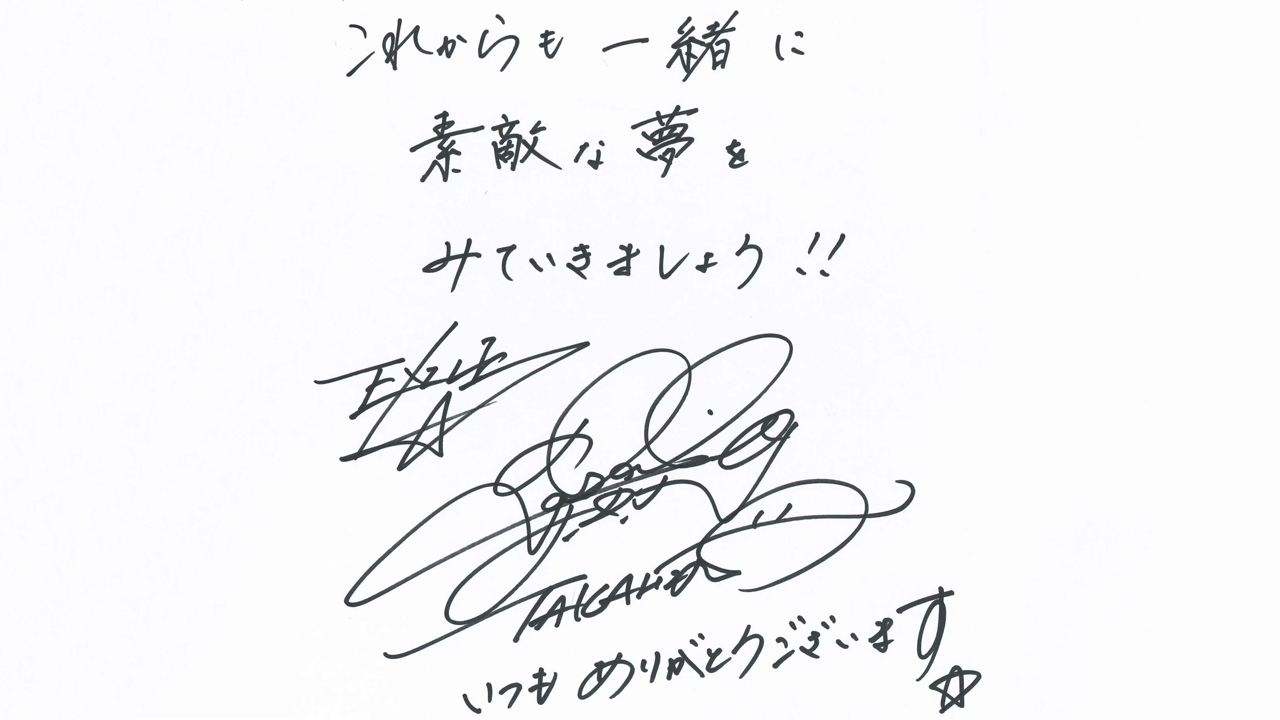 これからも 一緒 に
素敵な夢を
みていきましょう!!
EXILE
TAKAHIRO
いつも ありがとうございます☆